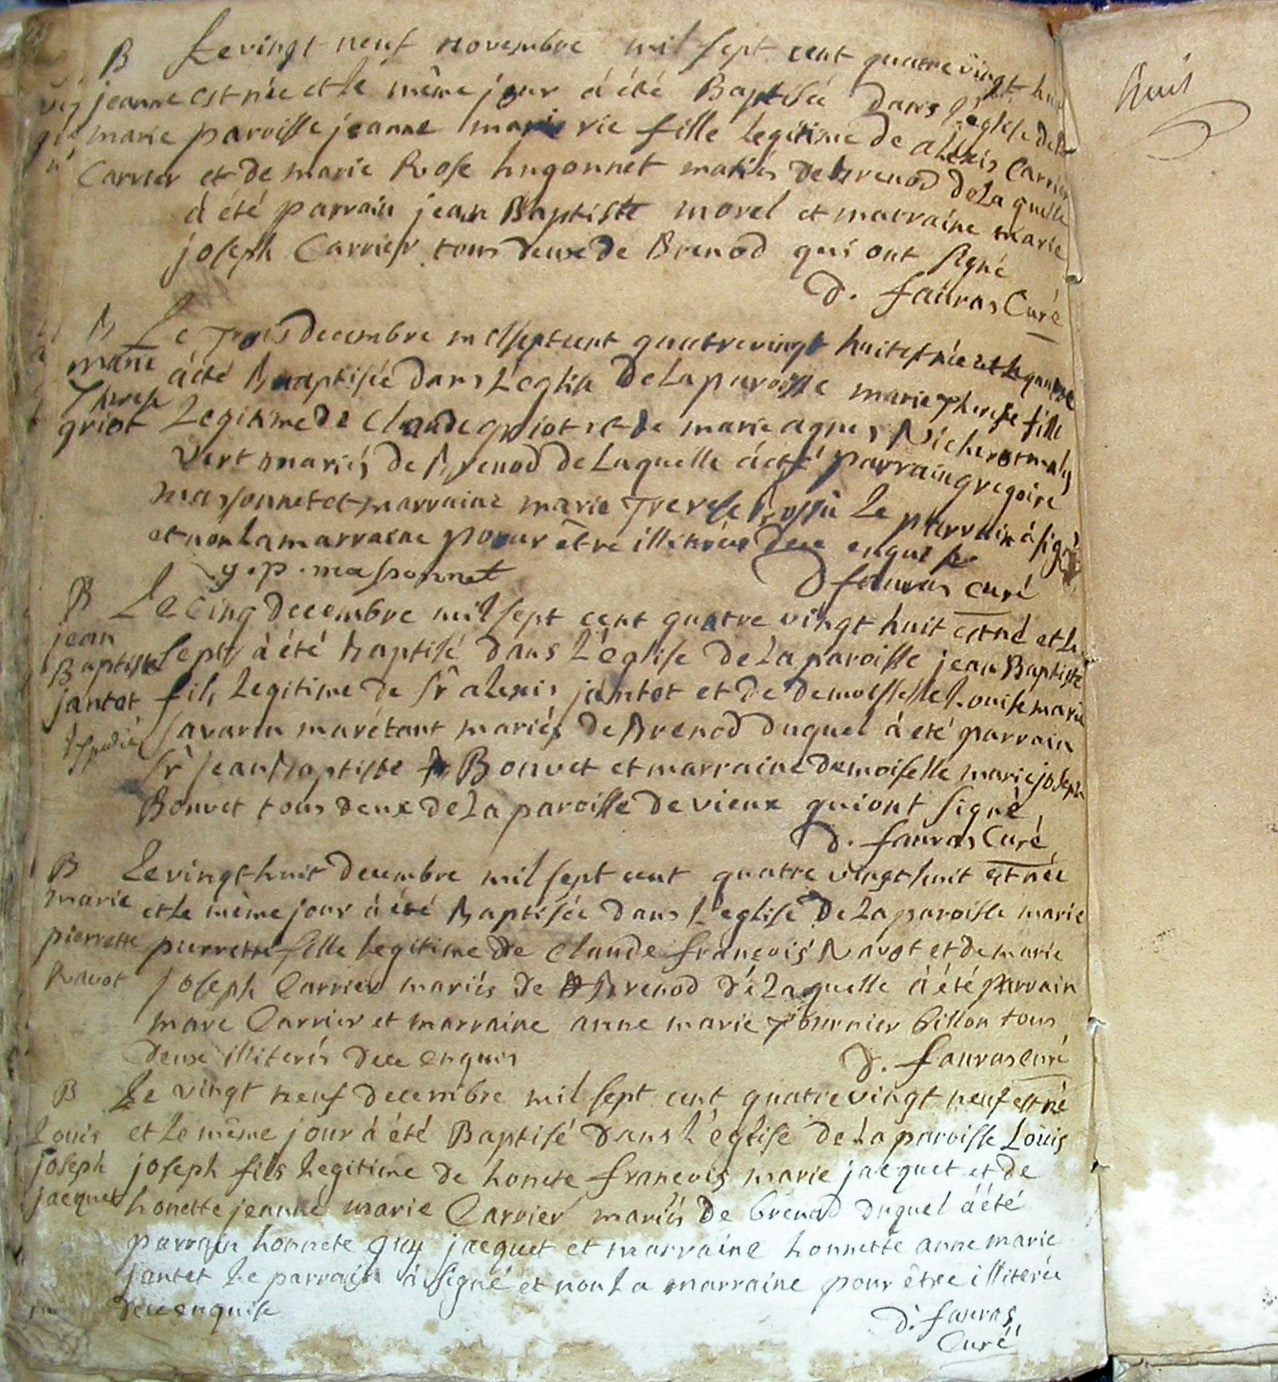 B Le vingt neuf novembre mil sept cent quatre vingt huit
jeanne est née et le même jour a été Baptisée dans L'eglise de la
marie paroisse jeanne marie fille legitime de alexis Carrier
Carrier et de marie Rose hugonnet mariés de brenod de Laquelle
à été parrain jean Baptiste morel et marraine marie
joseph Carrier tous deux de Brenod qui ont signé
D. fauras Curé
B Le trois decembre mil sept cent quatre vingt huit est née et le
marie à été Baptisée dans L'eglise De La paroisse marie Therese fille
Therese
griot Legitime de Claude griot et de marie agnes
vert mariés de Brenod de Laquelle à été parrain gregoire
massonnet et marraine marie Therese Le parrain à signé
et non La marraine pour être illiterée dece enquise
g. p. massonnet D fauras curé
B Le cinq decembre mil sept cent quatre vingt huit est né et Le
jean
Baptiste sept à été baptisé dans L'église De La paroisse jean Baptiste
jantet fils Legitime de Sr alexis jantet et de demoiselle Louise marie
Expedié Savarin mariés de Brenod duquel à été parrain
Sr jean Baptiste Bonvet et marraine demoiselle marie joseph
Bonvet tous deux de La paroisse de vieux qui ont signé
D. fauras Curé
B Le vingt huit decembre mil sept cent quatre vingt huit est née
marie et le même jour à été Baptisée dans L'eglise De La paroisse marie
pierrette pierrette fille Legitime de Claude françois Ravot et de marie
Ravot joseph Carrier mariés de Brenod de Laquelle à été parrain
marc Carrier et marraine anne marie Tournier Billon tous
deux illiterés dece enquis D. fauras curé
B Le vingt neuf decembre mil sept cent quatre vingt neuf est né
Louis et Le même jour à été Baptisé dans L'église De La paroisse Louis
joseph joseph fils Legitime de honete françois marie jacquet et de
jacquet honette jeanne marie Carrier mariés de brenod duquel à été
parrain honnete guy jacquet et marraine honnette anne marie
jantet Le parrain à signé et non La marraine pour être illiterée
dece enquise D. fauras
Curé
huit